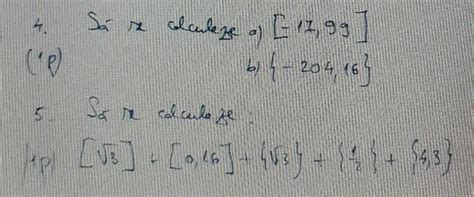 4. Să se calculeze a) [-17,99]
(1p) b) {-204,16}
5. Să se calculeze:
(1p) [√3] + [0,16] + {√3} + {1/2} + {4,3}